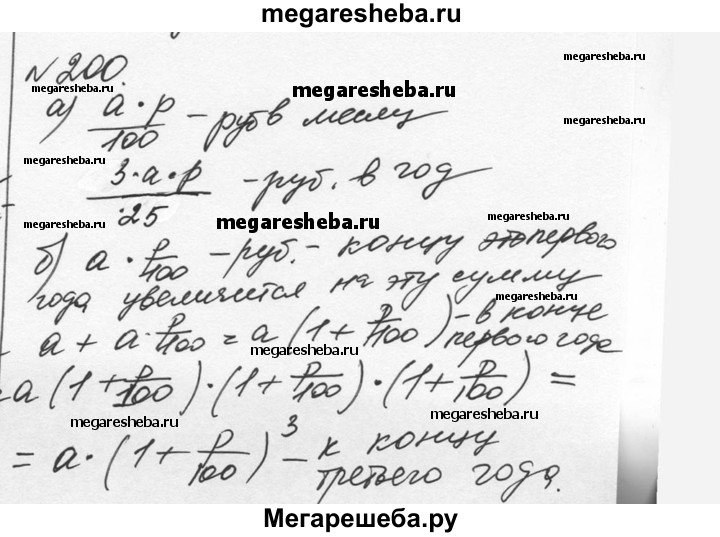 megaresheba.ru
№ 200.
megaresheba.ru
megaresheba.ru
megaresheba.ru
а) a · p / 100 – руб в месяц
megaresheba.ru
megaresheba.ru
3 · a · p / 25 – руб. в год
megaresheba.ru
megaresheba.ru
megaresheba.ru
б) a · p/100 – руб. – концу первого
года увеличится на эту сумму
megaresheba.ru
a + a · p/100 = a (1 + p/100) – в конце
первого года
megaresheba.ru
= a (1 + p/100) · (1 + p/100) · (1 + p/100) =
megaresheba.ru
megaresheba.ru
= a · (1 + p/100)³ – к концу
третьего года.
Мегарешеба.ру